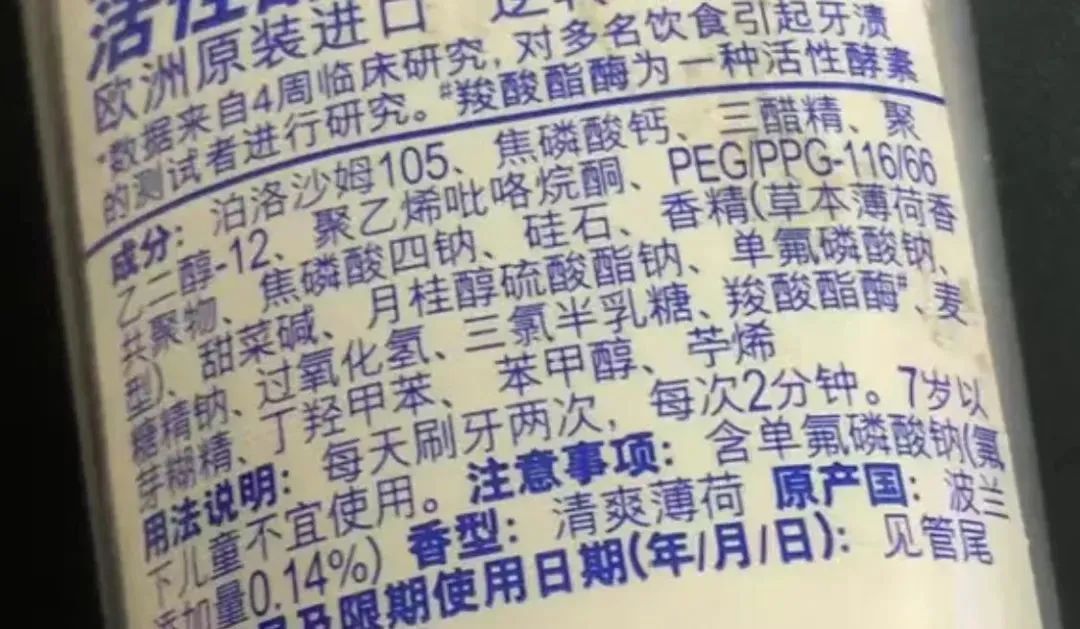 活性
欧洲原装进口
*数据来自4周临床研究,对多名饮食引起牙渍
的测试者进行研究。#羧酸酯酶为一种活性酵素
成分:泊洛沙姆105、焦磷酸钙、三醋精、聚
乙二醇-12、聚乙烯吡咯烷酮、PEG/PPG-116/66
共聚物、焦磷酸四钠、硅石、香精(草本薄荷香
型)、甜菜碱、月桂醇硫酸酯钠、单氟磷酸钠、
糖精钠、过氧化氢、三氯半乳糖、羧酸酯酶#、麦
芽糊精、丁羟甲苯、苯甲醇、苧烯
用法说明:每天刷牙两次,每次2分钟。7岁以
下儿童不宜使用。注意事项:含单氟磷酸钠(氟
添加量0.14%) 香型:清爽薄荷 原产国:波兰
及限期使用日期(年/月/日):见管尾